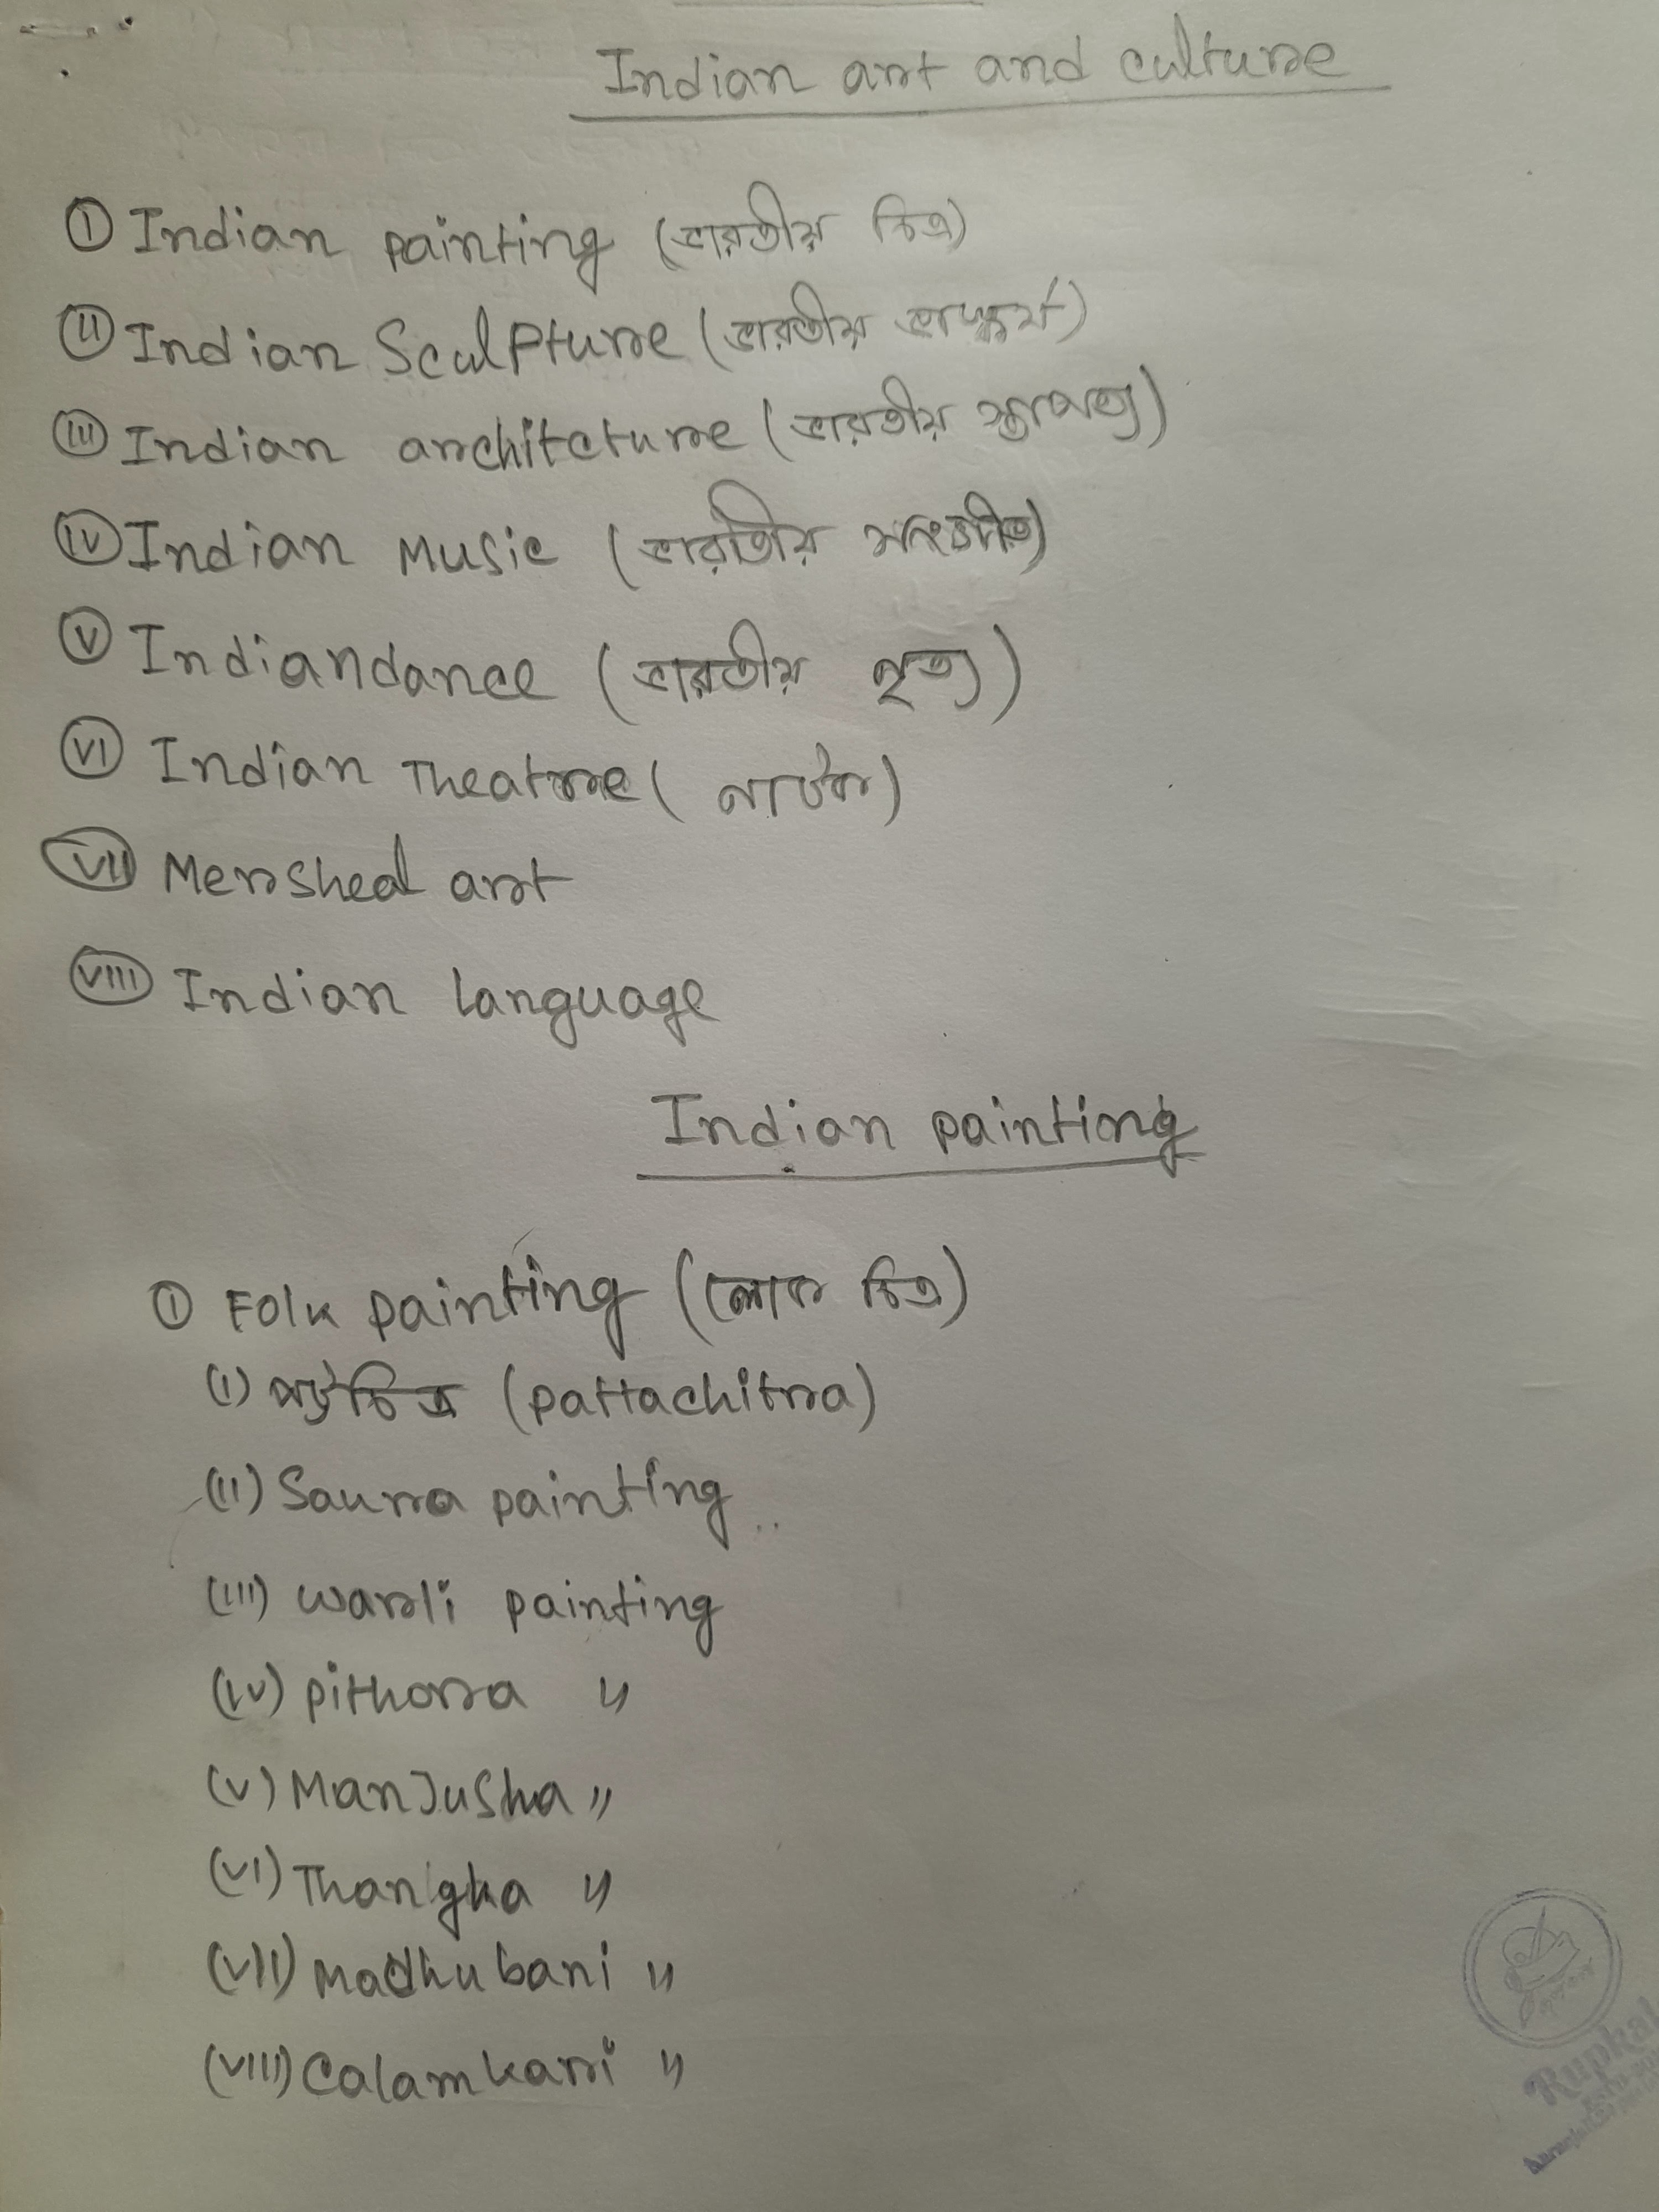 Indian art and culture
(I) Indian painting (ভারতীয় চিত্র)
(II) Indian Sculpture (ভারতীয় ভাস্কর্য)
(III) Indian architcture (ভারতীয় স্থাপত্য)
(IV) Indian Music (ভারতীয় সংগীত)
(V) Indiandance (ভারতীয় নৃত্য)
(VI) Indian Theatre (নাটক)
(VII) Mersheal art
(VIII) Indian language
Indian painting
(I) Folk painting (লোক চিত্র)
(I) পট্টচিত্র (pattachitra)
(II) Saura painting
(III) warli painting
(IV) pithora "
(V) Manjusha "
(VI) Thangka "
(VII) Madhubani "
(VIII) Calamkari "